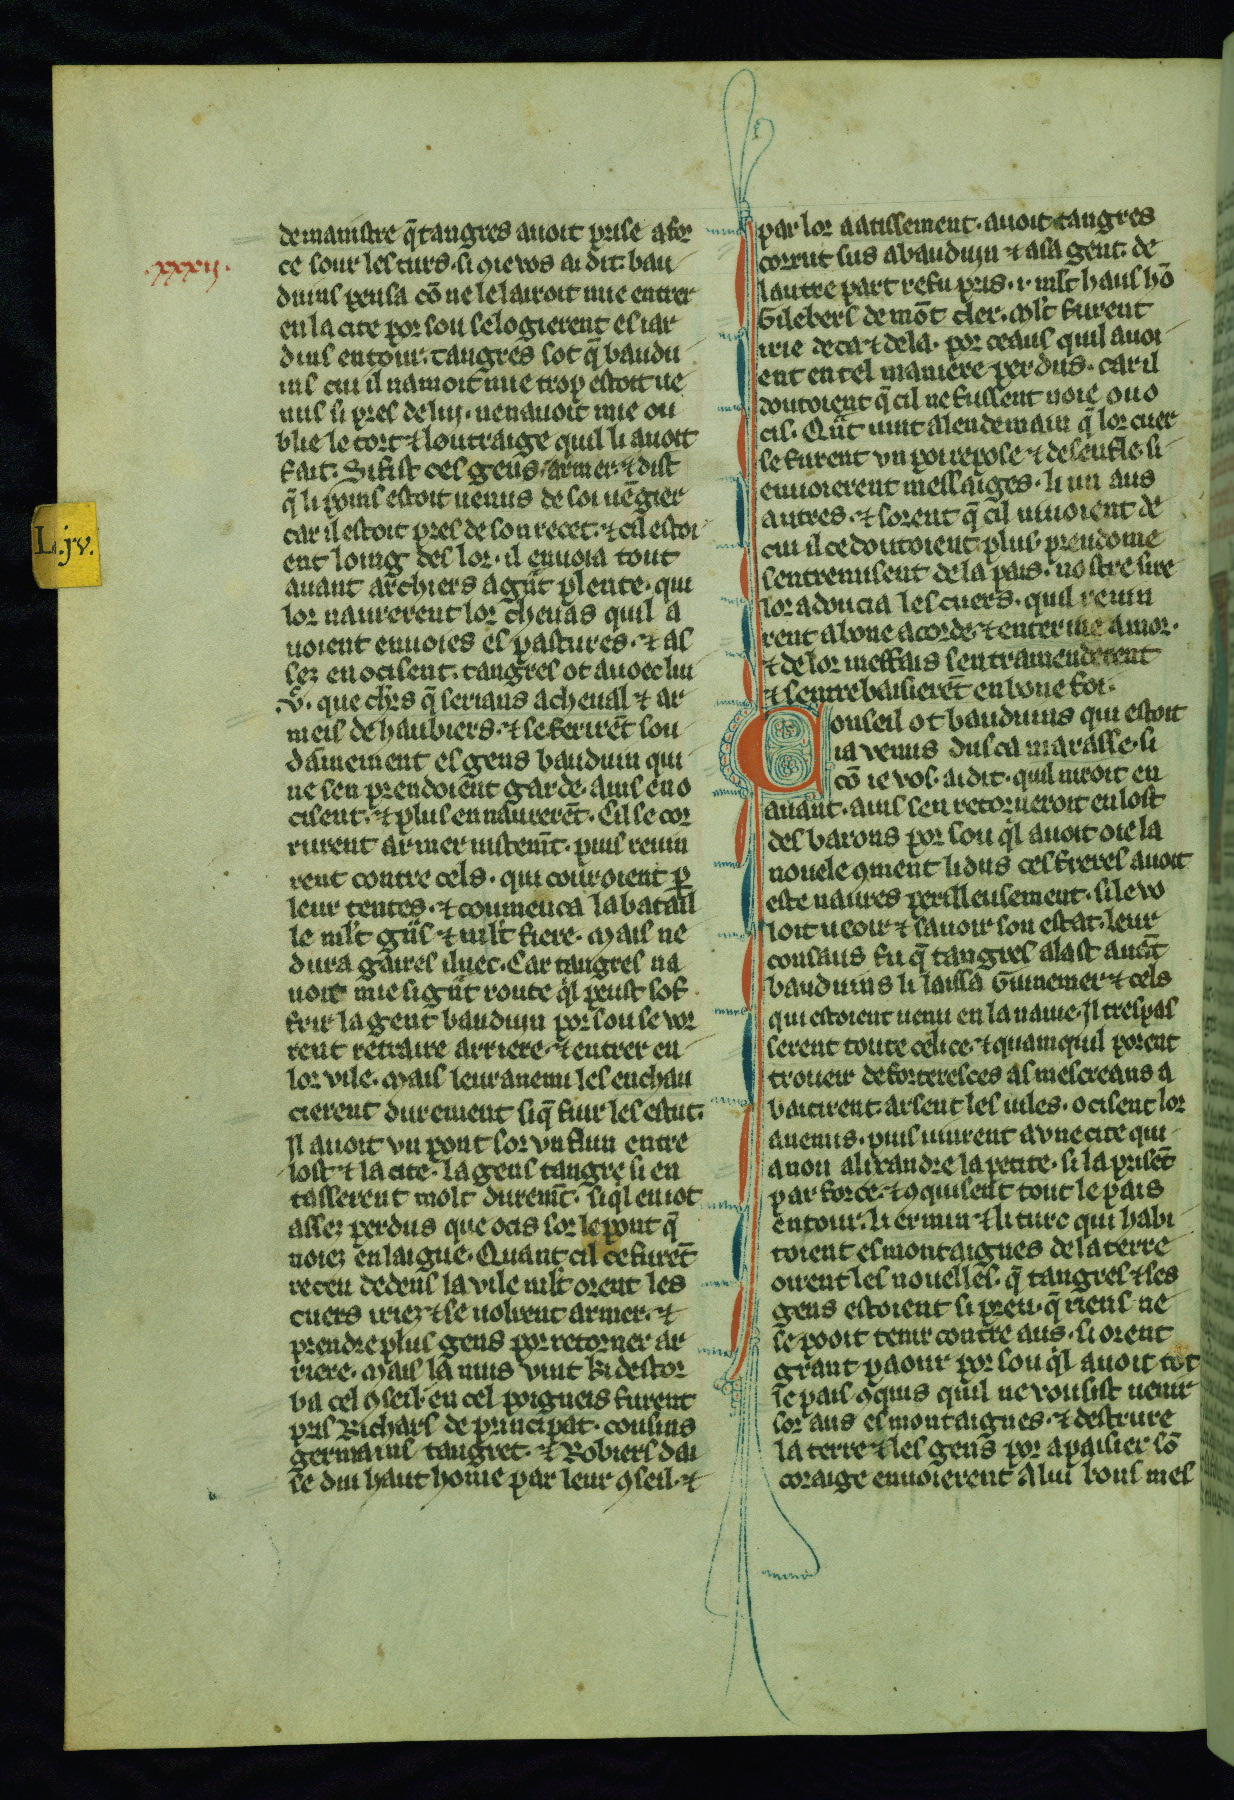 de mamistre q̄ tangres auoit prise a for
.xxxij.
ce sour les turs. si 9 ie vos ai dit. bau
duins pensa cō ne le lairoit mie entrer
en la cite por sou se logierent es iar
dins entour. tangres sot q̄ baudu
ins cui il namoit mie trop estoit ue
nus si pres de luj. nen auoit mie ou
blie le tort ⁊ loutraige quil li auoit
fait. Si fist ces gens armer. ⁊ dist
q̄ li poins estoit uenus de soi uēgier
car il estoit pres de son recet. ⁊ cil estoi
L.jv.
ent loing des lor. il enuoia tout
auant archiers a gn̄t plente. qui
lor naurerent lor cheuas quil a
uoient enuoies es pastures. ⁊ as
sez en ocisent. tangres ot auoec lui
.vͨ. que chr̄s q̄ serians a cheual ⁊ ar
meis de haubiers. ⁊ se ferirēt sou
dainement es gens bauduin qui
ne sen prendoient garde. ains en o
cisent. ⁊ plus en naurerēt. Cil se cor
rurent armer uistem̄t. puis reuin
rent contre cels. qui couroient p̱
leur tentes. ⁊ coumenca la batail
le ml̄t gn̄s ⁊ ml̄t fiere. Mais ne
dura gaires iluec. Car tangres na
uoit mie si gn̄t route q̄l peust sof
frir la gent bauduin por sou se vor
rent retraire arriere. ⁊ entrer en
lor vile. Mais leur anemi les enchau
cierent durement si q̄ fuir les estut.
Il auoit vn pont sor vn flun entre
lost ⁊ la cite. la gens tangre si en
tasserent molt durem̄t. si q̄l en i ot
assez perdus que ocis sor le pont q̄
noiez en laigue. Quant cil ce furēt
receu dedens la vile ml̄t orent les
cuers iriez ⁊ se uolrent armer. ⁊
prendre plus gens por retorner ar
riere. Mais la nuis vint ki destor
ba cel 9seil. en cel poigneis furent
pris Richars de principat. cousins
germains tangret. ⁊ Robiers dai
se dui haut home par leur 9seil. ⁊
par lor aatissement. auoit tangres
corrut sus a bauduin ⁊ a sa gent. de
lautre part refu pris .i. ml̄t haus hō
Gilebers de mōt cler. Ml̄t furent
irie de ca ⁊ de la. por ceaus quil auoi
ent en tel maniere perdus. car il
doutoient q̄ cil ne fussent noie ou o
cis. Qn̄t uint a lendemain q̄ lor cuer
se furent vn poi repose ⁊ desenfle. si
enuoierent messaiges. li un aus
autres. ⁊ sorent q̄ cil uiuoient de
cui il ce doutoient. plus preudome
sentremisent de la pais. nostre sire
lor adoucia les cuers. quil reuin
rent a bone acorde. ⁊ enterine amor.
⁊ de lor meffais sentramenderent
⁊ sentrebaisierēt en bone foi.
Conseil ot bauduins qui estoit
ia venus dusca marasse. si
cō ie vos. ai dit. quil niroit en
auant. ains sen retorneroit en lost
des barons por sou q̄l auoit oie la
nouele 9ment li dus ces freres auoit
este naures perilleusement. si le vo
loit ueoir ⁊ sauoir son estat. leur
consaus fu q̄ tangres alast auāt
bauduins li laissa Guinemer ⁊ cels
qui estoient uenu en la nauie. Il trespas
serent toute celice. ⁊ quamquil porent
troueir de forteresces as mescreans a
batirent. arsent les uiles. ocisent lor
anemis. puis uinrent a vne cite qui
a non alixandre la petite. si la prisēt
par force. ⁊ 9quisent tout le pais
entour. li ermin ⁊ li turc qui habi
toient es montaignes de la terre
oirent les nouelles. q̄ tangres ⁊ ses
gens estoient si preu. q̄ riens ne
se pooit tenir contre aus. si orent
grant paour por sou q̄l auoit tot
le pais 9quis quil ne vousist uenir
sor aus es montaignes. ⁊ destrure
la terre ⁊ les gens por apaisier sō
coraige enuoierent a lui bous mes